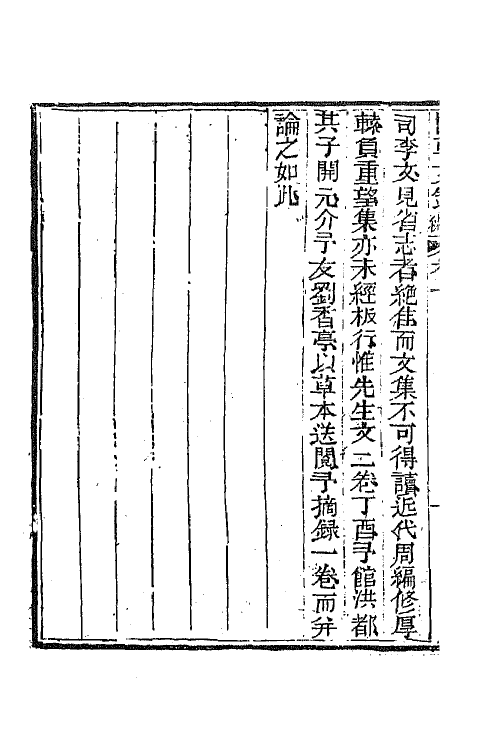 司李文見省志者絶佳而文集不可得讀近代周編修厚
轅負重望集亦未經板行惟先生文二卷丁酉予館洪都
其子開元介予友劉香亭以草本送閱予摘録一卷而弁
論之如此